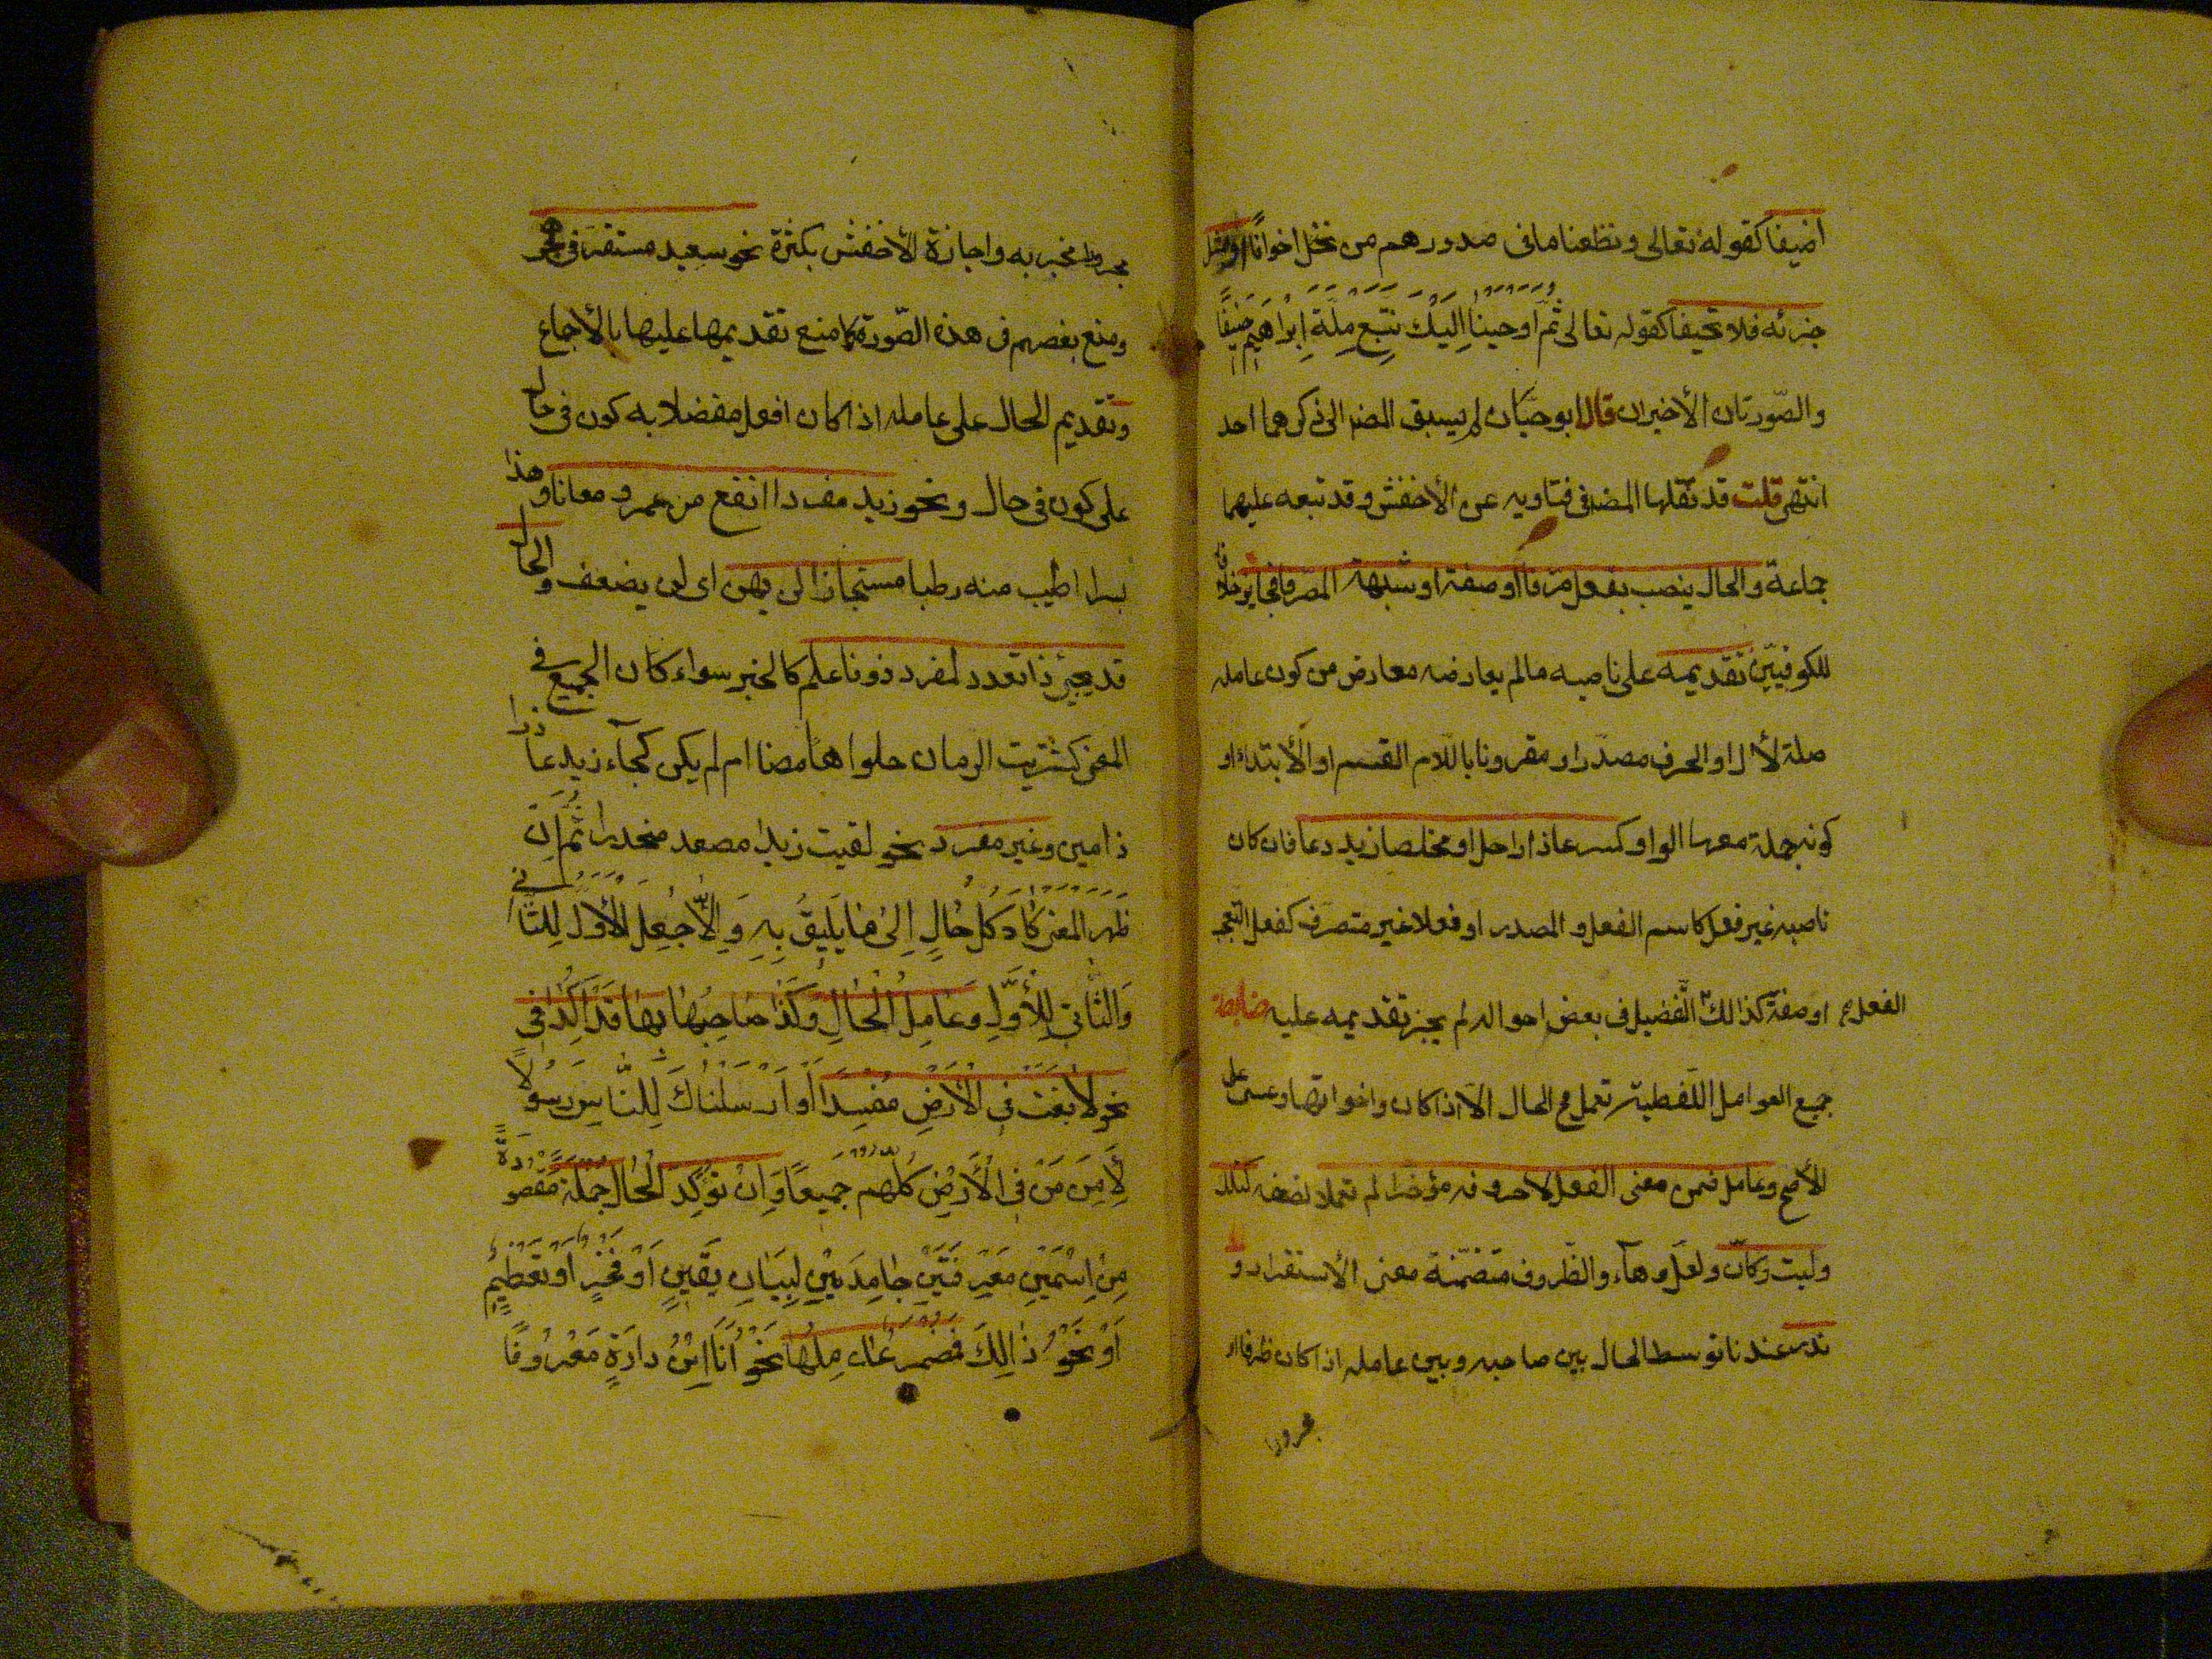 اضيفا كقوله تعالى ونظعنا ما فى صدورهم من غل اخوانا او مثل
جزئه فلا تحيفا كقوله تعالى ثُمَّ اَوحينا اِلَيْكَ نتَّبِع مِلَّةَ اِبراهيم حَنيفًا
والصّورتان الأخيران قال ابو حيّان لم يسبق المض الى ذكرهما احد
انتهى قلت قد نقلها المض فى فتاويه عن الأخفش وقد تبعه عليهما
جماعة والحال ينصب بفعل صرّفا أو صفة اوشبهة المصرفا فجايز خلافا
للكوفيّين تقديمه على ناصبه مالم يعارضه معارض من كون عامله
صلة لأل او الحرف مصدر او مقرونا باللام القسم او الأبتداء او
كونه جملة معها الواو كسرعا ذا راحل او مخلصا زيد دعا فان كان
ناصبه غير فعل كاسم الفعل و المصدر او فعلا غير متصرف كفعل التعجب
او صفة كذالك الّفضيل فى بعض احواله لم يجز تقديمه عليه ضابطة
الفعل
جميع العوامل اللّفظية تعمل فى الحال الّا اذا كان واخواتها وعسى على
الأصح وعامل ضمن معنى الفعل لا حروفه مؤخرا لم تعملا لضعفه كتلك
وليت وكانّ ولعلّ وهآء والظّروف متضمّنة معنى الأستقرار و
ندر عندنا توسط الحال بين صاحبه وبين عامله اذا كان ظرفا او
مجرورا
مجرورا مخبر به واجازة الأخفش بكثرة نحو سعيد مستقرّ فى هجر
ومنع بعضهم فى هذه الصّورة كما منع تقديمها عليها بالأجماع
وتقديم الحال على عامله اذا كان افعل مفضلا به كون فى حال
على كون فى حال ونحو زيد مفردا انفع من عمرو معانا وهذا
بسرا اطيب منه رطبا مستجاز الن يهن اى لن يضعف والحال
قد يجئ ذا تعدد لمفرد فونا علم كالخبر سواء كان الجميع فى
المعنى كشتريت الرمان حلوا هامضا ام لم يكن كجآء زيد عاذرا
ذامين وغير مفرد نحو لقيت زيدا مصعد منحدرا ثُمَّ اِن
ظَهَر المعنى كاد كُلّ حَالٍ اِلىٰ مٰا يَليقُ بِهِ وَ اِلّا جُعِل الأوّل لِلثّاني
وَالثّاني لِلأوَّلِ وَعٰامِلُ الْحٰالِ وَكَذٰا صٰاحِبُهٰا بِهٰا قَدْ اُكِّدٰ فى
نحو لاٰ تَعْثَ فى الْأَرْضِ مُفْسِدًا أَو اَرْسَلْنٰاكَ لِلنّٰاسِ رَسُولًا
لَأٰمَنَ مَنْ فِى الْأَرْضِ كُلُّهُم جَميعًا وَاِنْ تُؤَكِّدَ الْحٰال جُمْلَة مَعْقُودَةً
مِنْ اِسْمَيْنِ مَعْرِفَتَيْنِ جٰامِدَيْنِ لِبَيٰانِ يَقينٍ اَوْ فَخْرٍ اَوْ تَعْظيمٍ
اَوْ نَحْوُ ذٰالِكَ فَمُضْمَر عٰامِلُهٰا نَحْوُ اَنَا ابْنُ دارَةٍ مَعْرُوفًا